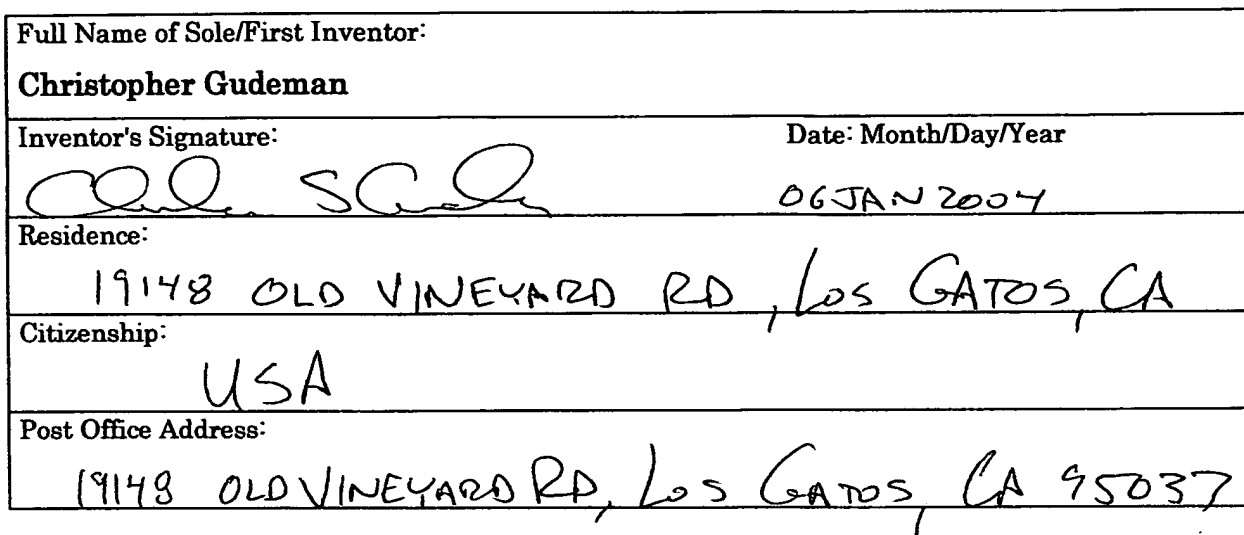 Full Name of Sole/First Inventor:
Christopher Gudeman
Inventor's Signature: Date: Month/Day/Year
06 JAN 2004
Residence:
19148 OLD VINEYARD RD, LOS GATOS, CA
Citizenship:
USA
Post Office Address:
19148 OLD VINEYARD RD, LOS GATOS, CA 95037